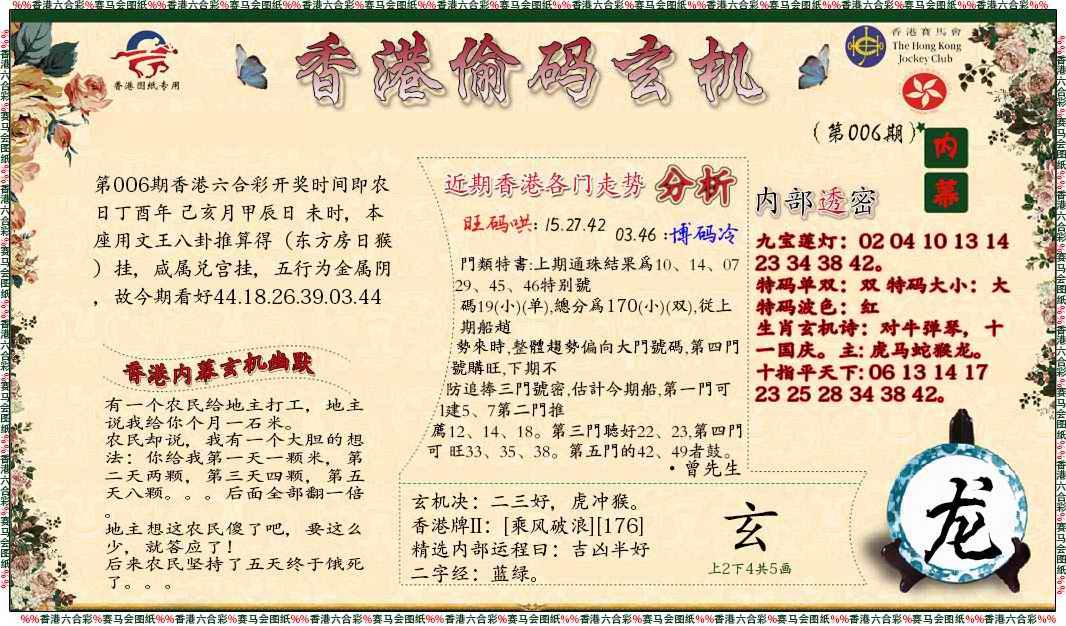 %%香港六合彩%赛马会图纸%%香港六合彩%赛马会图纸%%香港六合彩%赛马会图纸%%香港六合彩%赛马会图纸%%香港六合彩%赛马会图纸%%香港六合彩%赛马会图纸%%香港六合彩%赛马会图纸%%
香港图纸专用
香港偷码玄机
香港賽馬會
The Hong Kong
Jockey Club
（第006期）
内
幕
第006期香港六合彩开奖时间即农
日丁酉年 己亥月甲辰日 未时，本
座用文王八卦推算得（东方房日猴
）挂，咸属兑宫挂，五行为金属阴
，故今期看好44.18.26.39.03.44
香港内幕玄机幽默
有一个农民给地主打工，地主
说我给你个月一石米。
农民却说，我有一个大胆的想
法：你给我第一天一颗米，第
二天两颗，第三天四颗，第五
天八颗。。。后面全部翻一倍
。
地主想这农民傻了吧，要这么
少，就答应了！
后来农民坚持了五天终于饿死
了。。。
近期香港各门走势 分析
旺码哄: 15.27.42
03.46 :博码冷
門類特書:上期通珠結果爲10、14、07
29、45、46特别號
碼19(小)(单),總分爲170(小)(双),從上
期船趟
勢來時,整體趨勢偏向大門號碼,第四門
號購旺,下期不
防追捧三門號密,估計今期船,第一門可
1建5、7第二門推
薦12、14、18。第三門聽好22、23,第四門
可 旺33、35、38。第五門的42、49者鼓。
・曾先生
玄机决：二三好，虎冲猴。
香港牌II：[乘风破浪][176]
精选内部运程曰：吉凶半好
二字经：蓝绿。
玄
上2下4共5画
内部透密
九宝莲灯：02 04 10 13 14
23 34 38 42。
特码单双：双 特码大小：大
特码波色：红
生肖玄机诗：对牛弹琴，十
一国庆。主: 虎马蛇猴龙。
十指平天下: 06 13 14 17
23 25 28 34 38 42。
龙
%%香港六合彩%赛马会图纸%%香港六合彩%赛马会图纸%%香港六合彩%赛马会图纸%%香港六合彩%赛马会图纸%%香港六合彩%赛马会图纸%%香港六合彩%赛马会图纸%%香港六合彩%赛马会图纸%%